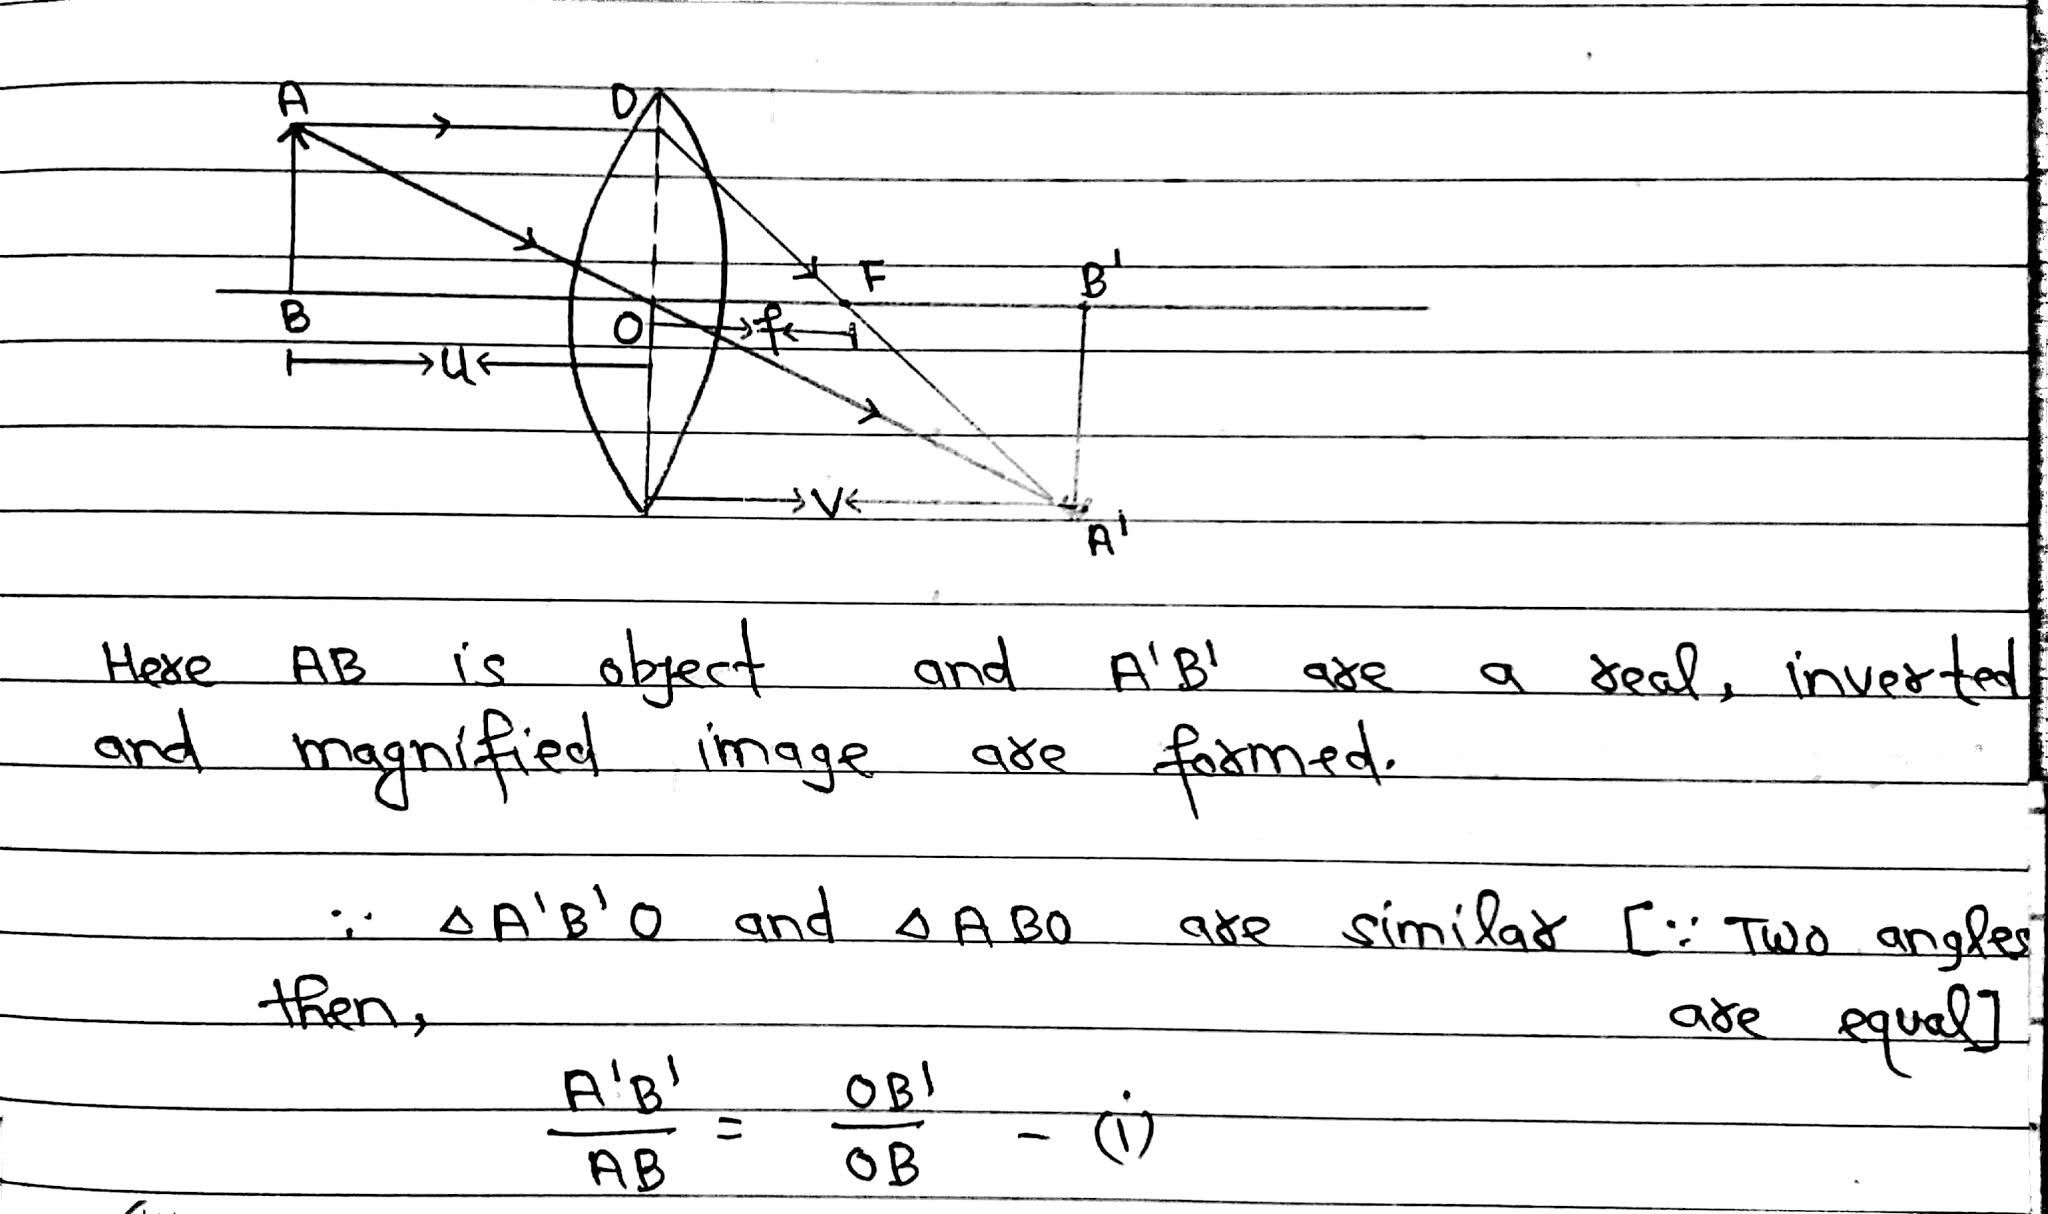 A D
F B'
B O f
u
v
A'
Here AB is object and A'B' are a real, inverted
and magnified image are formed.
∵ ΔA'B'O and ΔABO are similar [∵ Two angles
then, are equal]
A'B'/AB = OB'/OB - (i)